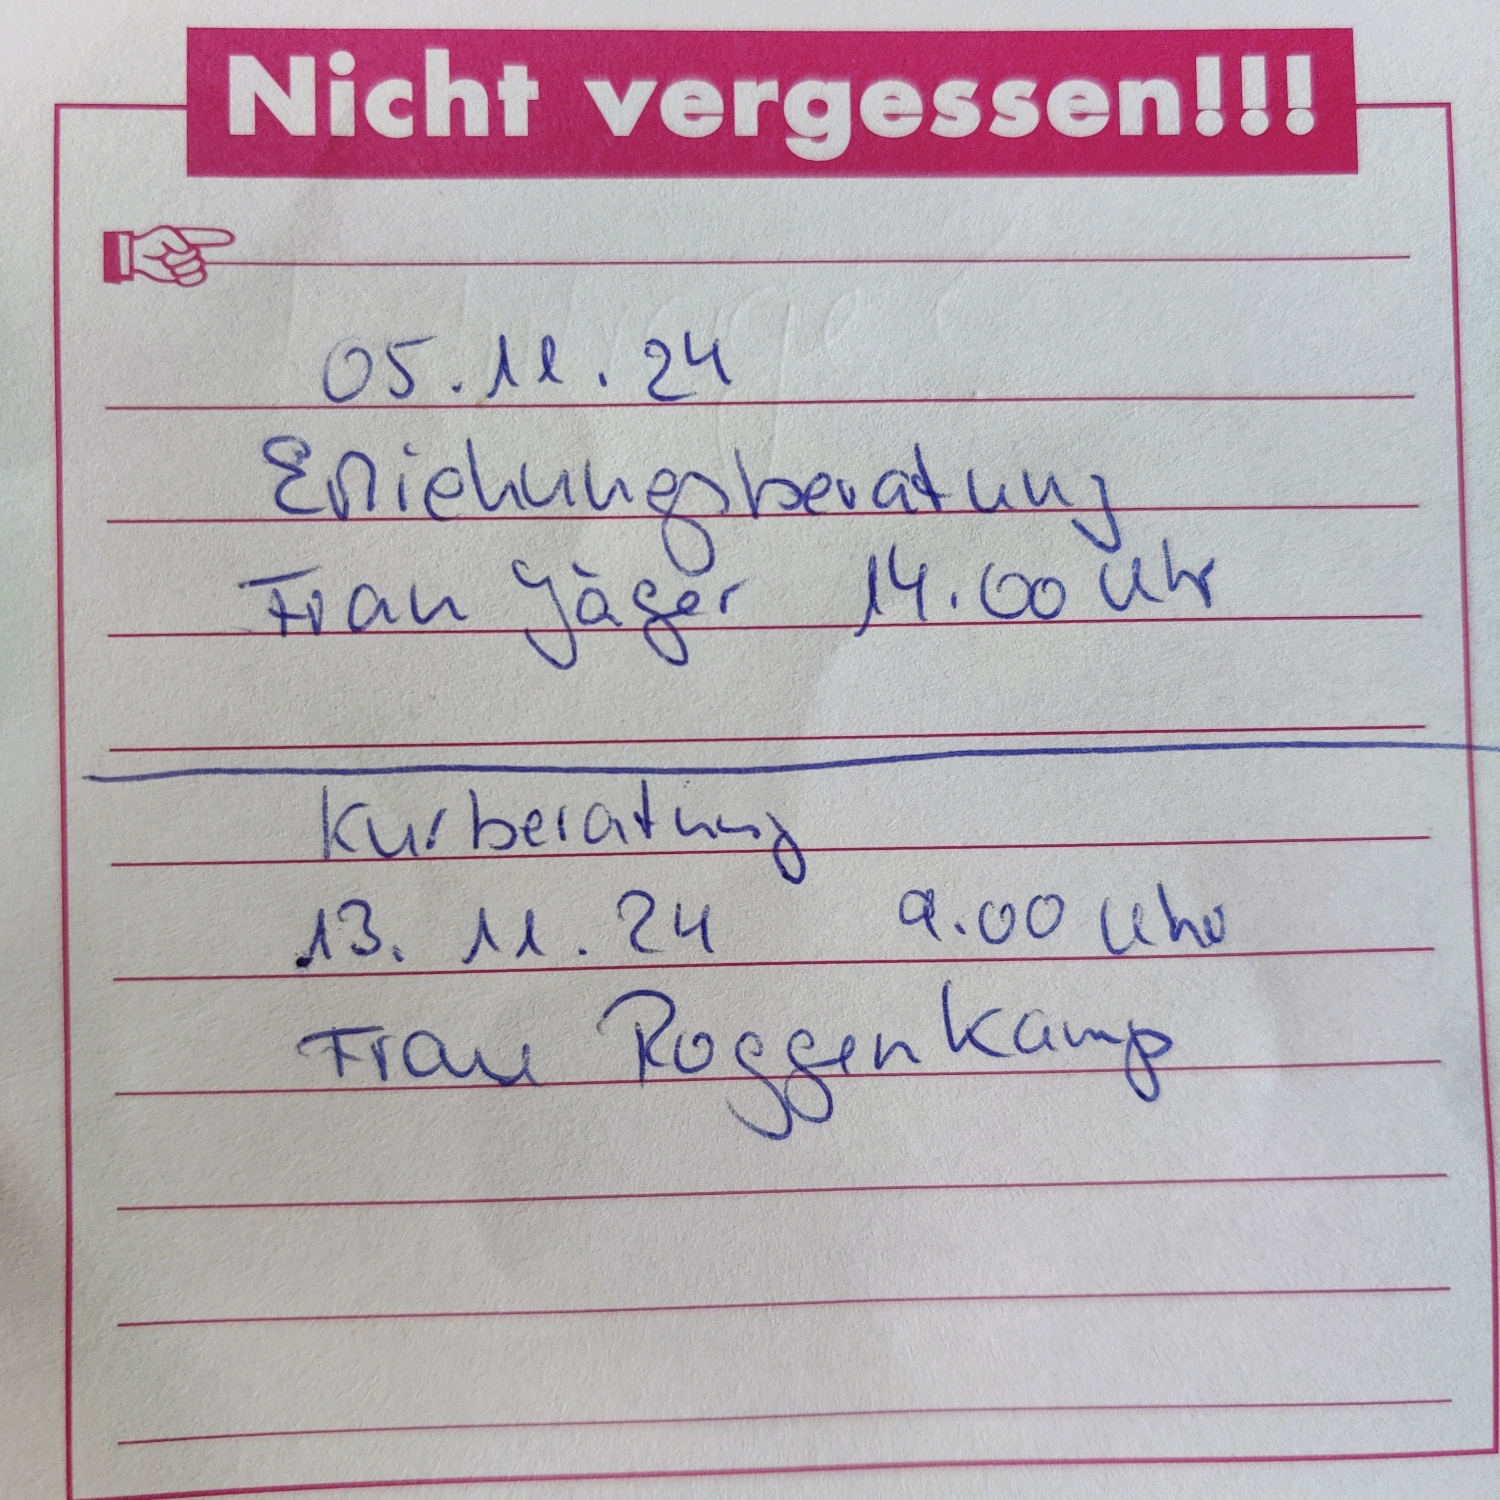 Nicht vergessen!!!
05.11.24
Erziehungsberatung
Frau Jäger 14.00 Uhr
Kurberatung
13. 11. 24 9.00 Uhr
Frau Roggenkamp